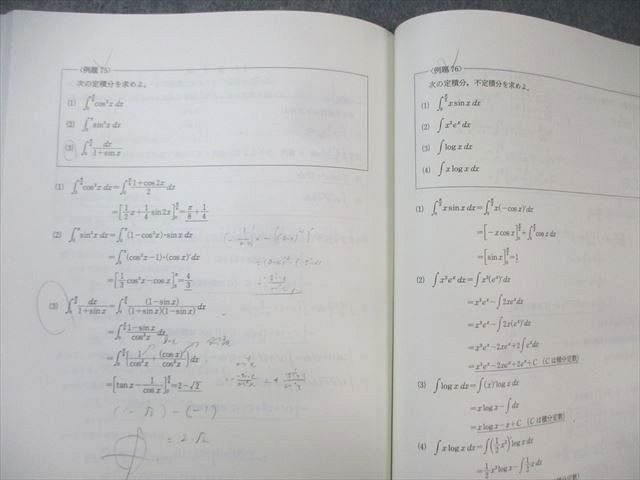 〈例題 75〉
次の定積分を求めよ。
(1) ∫₀^{π/4} cos²x dx
(2) ∫₀^π sin³x dx
(3) ∫₀^{π/4} dx/(1+sin x)
(1) ∫₀^{π/4} cos²x dx = ∫₀^{π/4} (1+cos2x)/2 dx
= [1/2 x + 1/4 sin2x]₀^{π/4} = π/8 + 1/4
(2) ∫₀^π sin³x dx = ∫₀^π (1-cos²x)・sin x dx
= ∫₀^π (cos²x-1)・(cos x)′dx
= [1/3 cos³x - cos x]₀^π = 4/3
(3) ∫₀^{π/4} dx/(1+sin x) = ∫₀^{π/4} (1-sin x)/((1+sin x)(1-sin x)) dx
= ∫₀^{π/4} (1-sin x)/cos²x dx
= ∫₀^{π/4} (1/cos²x + (cos x)′/cos²x) dx
= [tan x - 1/cos x]₀^{π/4} = 2-√2
(1-√2) - (-1)
= 2-√2
〈例題 76〉
次の定積分, 不定積分を求めよ。
(1) ∫₀^{π/2} x sin x dx
(2) ∫ x²eˣ dx
(3) ∫ log x dx
(4) ∫ x log x dx
(1) ∫₀^{π/2} x sin x dx = ∫₀^{π/2} x(-cos x)′dx
= [-x cos x]₀^{π/2} + ∫₀^{π/2} cos x dx
= [sin x]₀^{π/2} = 1
(2) ∫ x²eˣ dx = ∫ x²(eˣ)′dx
= x²eˣ - ∫ 2xeˣ dx
= x²eˣ - ∫ 2x(eˣ)′dx
= x²eˣ - 2xeˣ + 2∫ eˣ dx
= x²eˣ - 2xeˣ + 2eˣ + C (C は積分定数)
(3) ∫ log x dx = ∫ (x)′ log x dx
= x log x - ∫ dx
= x log x - x + C (C は積分定数)
(4) ∫ x log x dx = ∫ (1/2 x²)′ log x dx
= 1/2 x² log x - ∫ 1/2 x dx